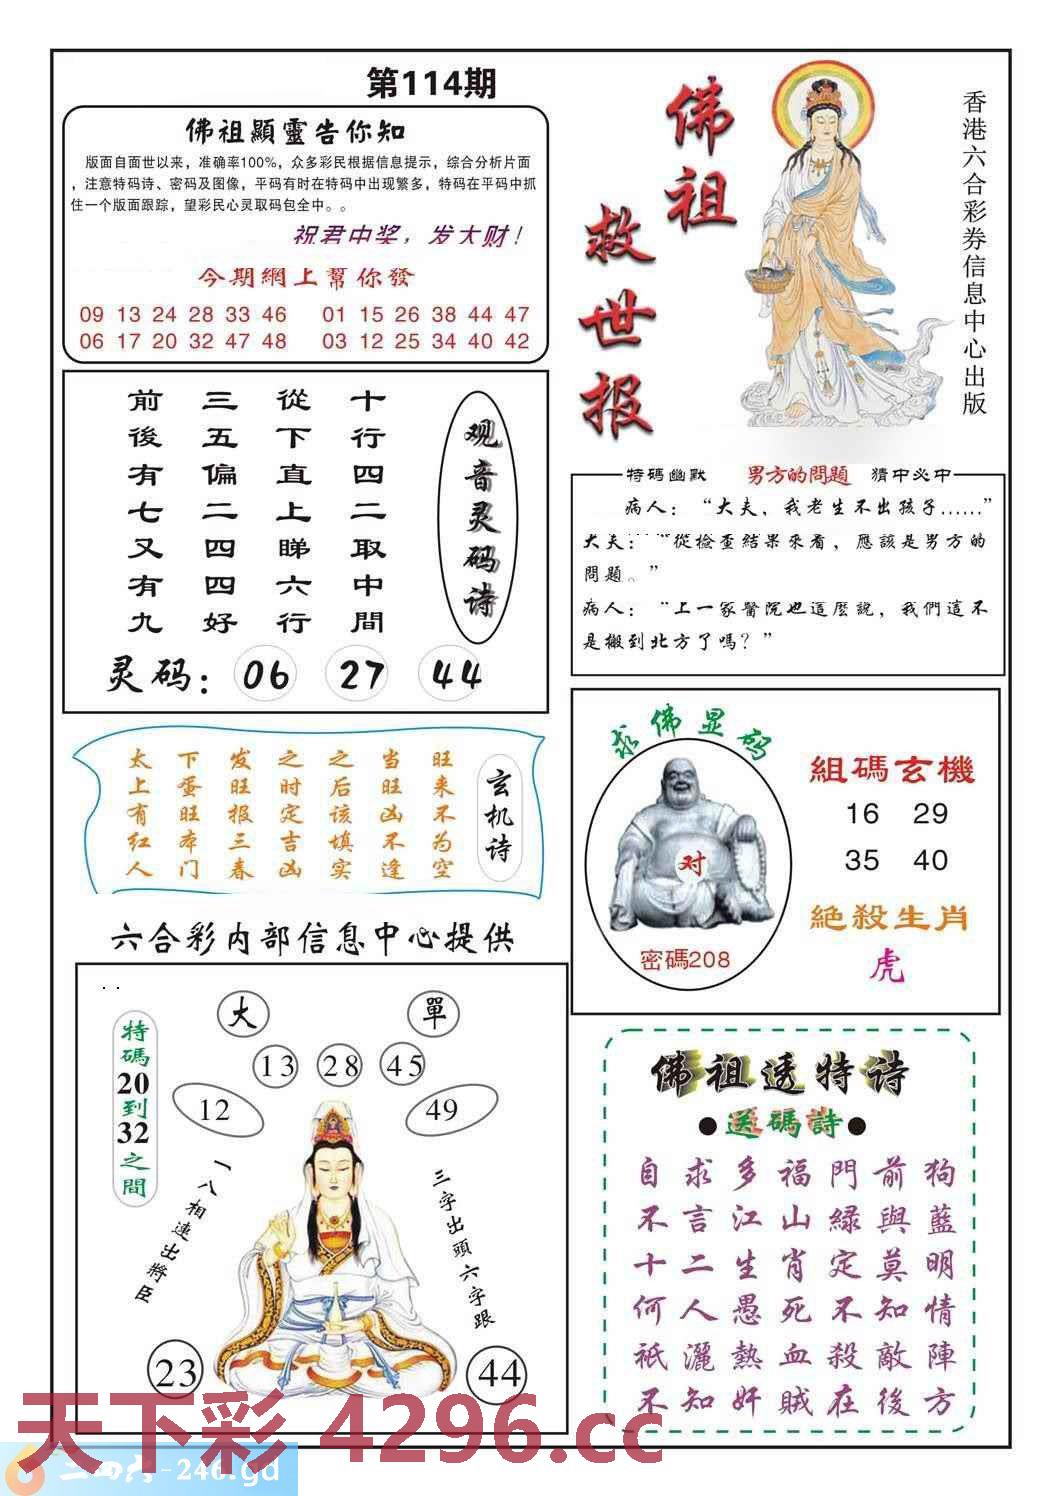 第114期
佛祖顯靈告你知
版面自面世以来，准确率100%，众多彩民根据信息提示，综合分析片面
，注意特码诗、密码及图像，平码有时在特码中出现繁多，特码在平码中抓
住一个版面跟踪，望彩民心灵取码包全中。。
祝君中奖，发大财！
今期網上幫你發
09 13 24 28 33 46 01 15 26 38 44 47
06 17 20 32 47 48 03 12 25 34 40 42
佛祖
救世报
香港六合彩券信息中心出版
观音灵码诗
十行四二取中間
從下直上睇六行
三五偏二四四好
前後有七又有九
灵码：06 27 44
特碼幽默 男方的問題 猜中必中
病人：“大夫，我老生不出孩子......”
大夫：“從檢查結果來看，應該是男方的
問題。”
病人：“上一家醫院也這麼說，我們這不
是搬到北方了嗎？”
玄机诗
旺来不为空
当旺凶不逢
之后该填实
之时定吉凶
发旺报三春
下蛋旺本门
太上有红人
求佛显码
对
密碼208
組碼玄機
16 29
35 40
絕殺生肖
虎
六合彩内部信息中心提供
特碼20到32之間
大
單
13
28
45
12
49
一八相連出將臣
三字出頭六字跟
23
44
佛祖透特诗
●送碼詩●
自求多福門前狗
不言江山綠與藍
十二生肖定莫明
何人愚死不知情
祇灑熱血殺敵陣
不知奸賊在後方
天下彩 4296.cc
二四六-246.gd